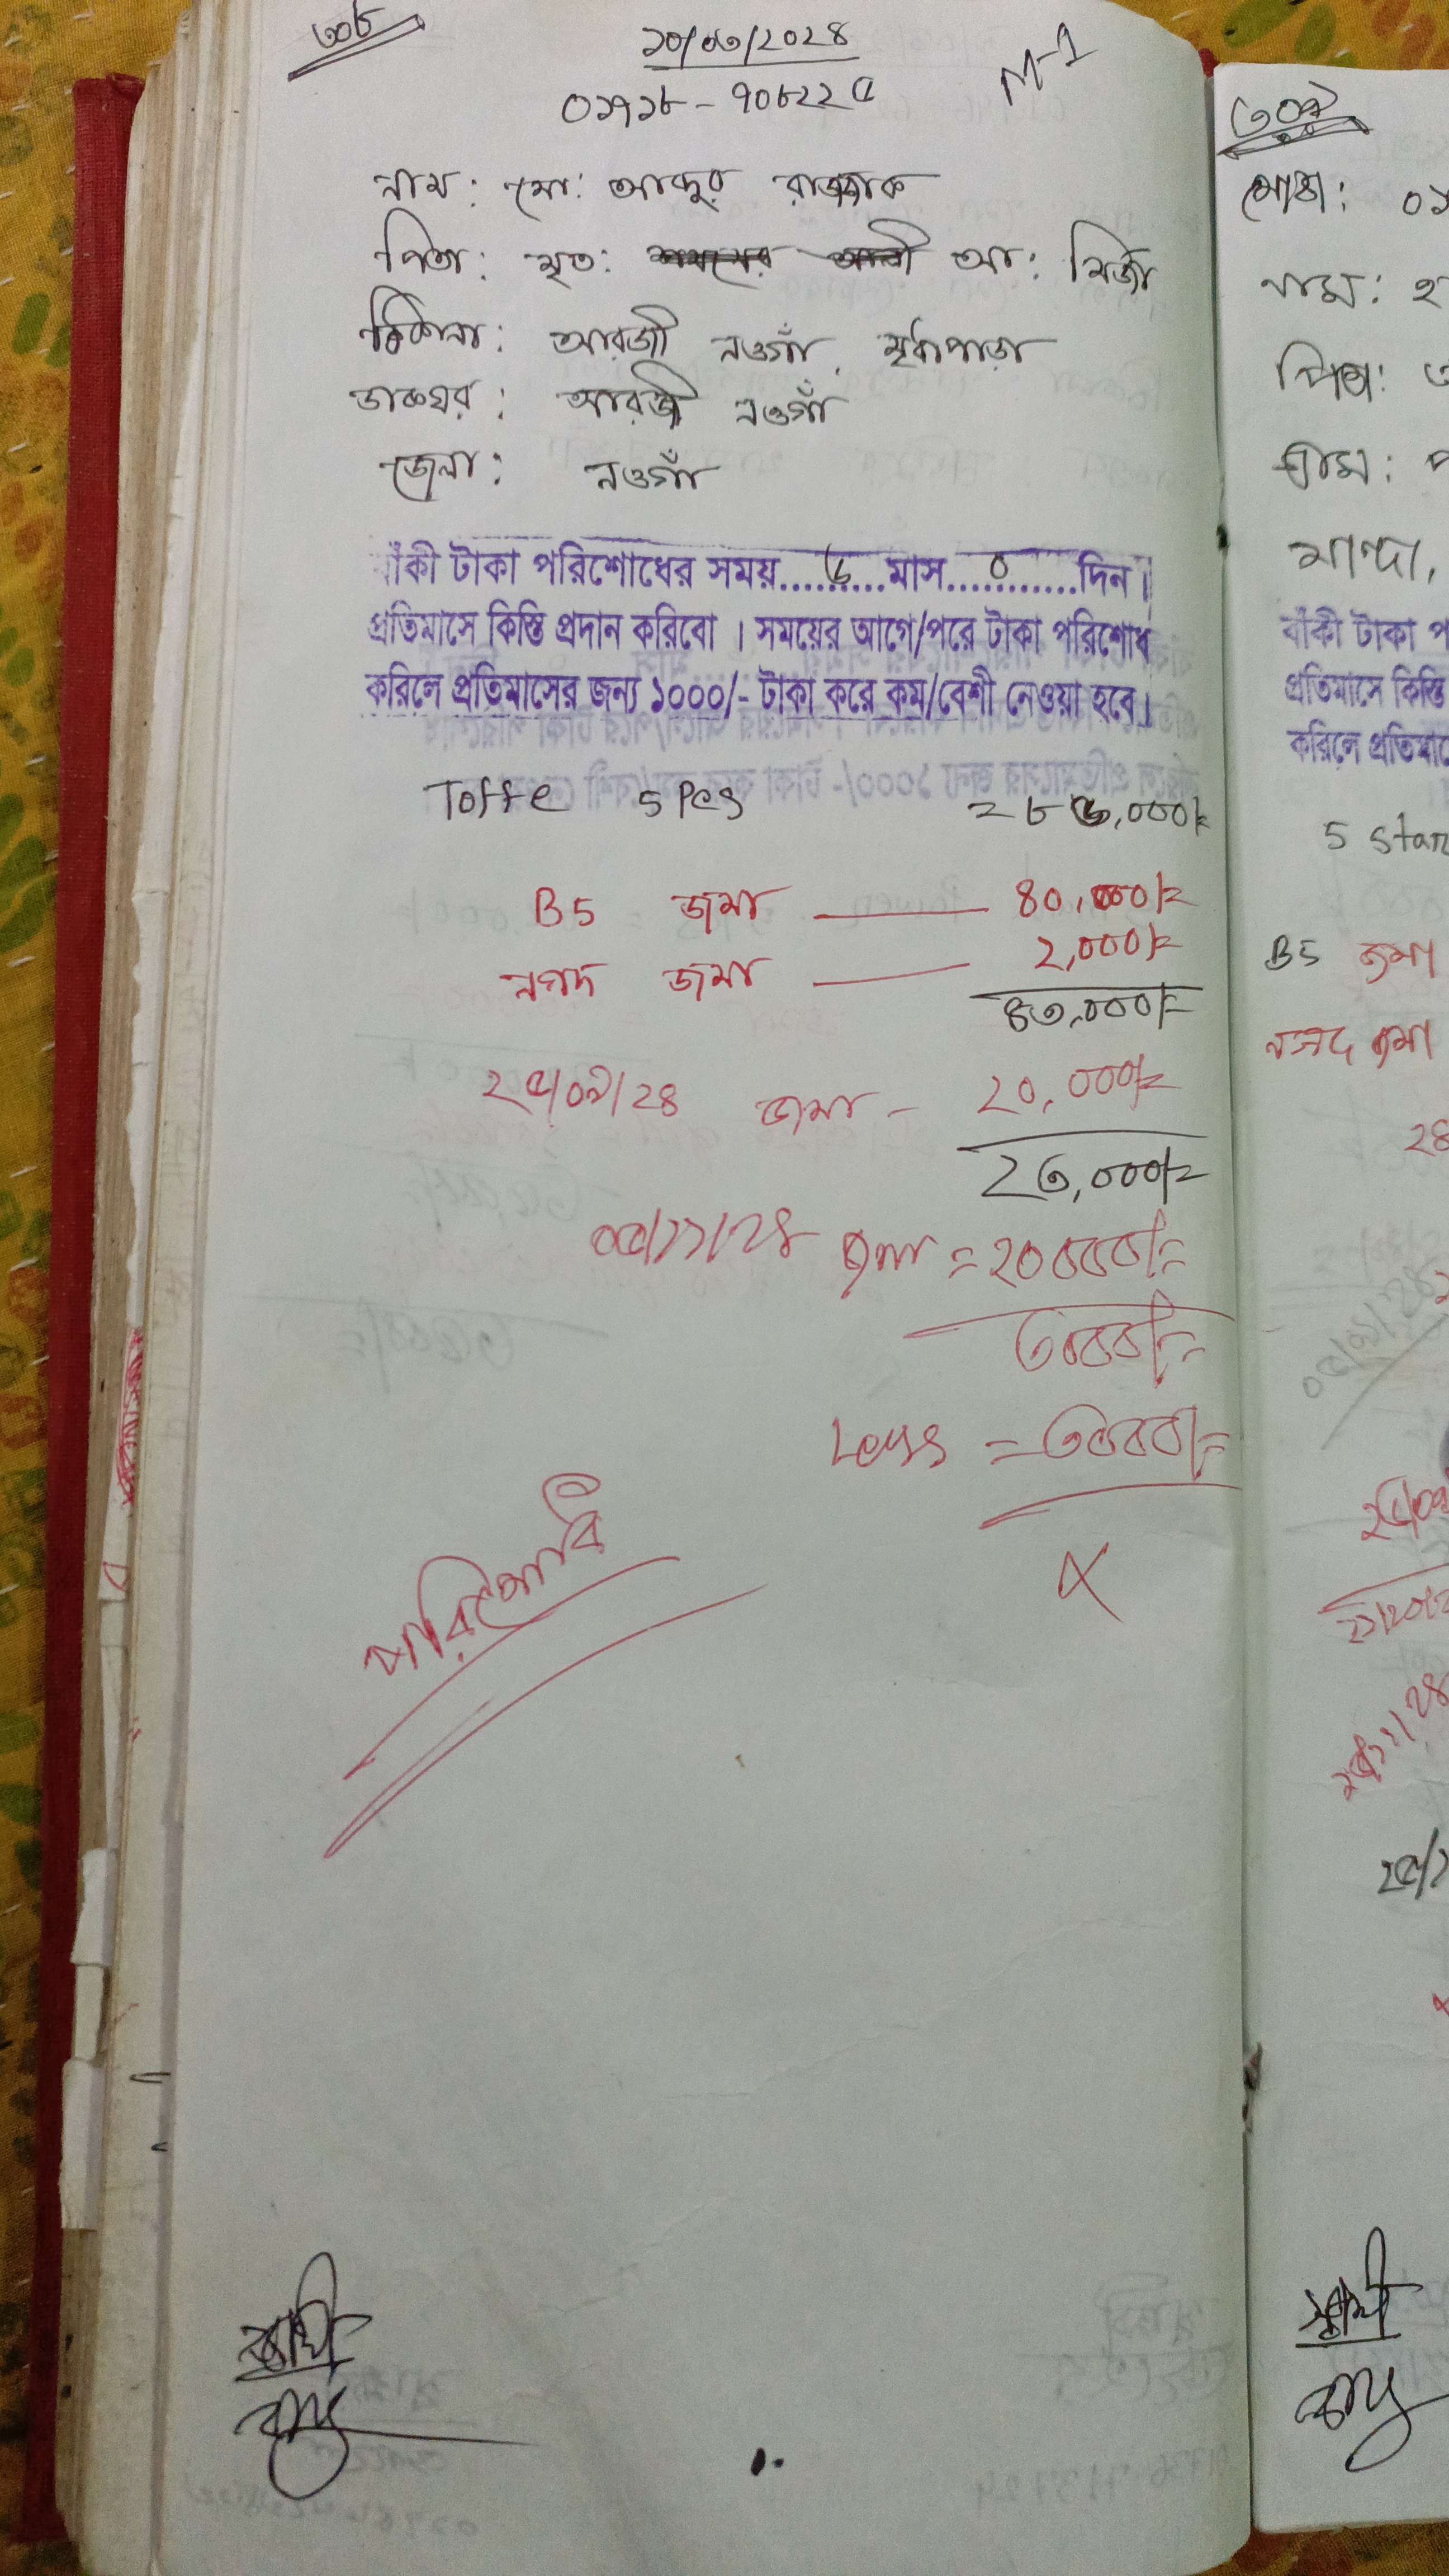 ৩০৮
১০/০৬/২০২৪
M-1
০১৭১৮-৭০৮২২৫
নাম: মো: আব্দুর রাজ্জাক
পিতা: মৃত: আ: মির্জা
ঠিকানা: আরজী নওগাঁ, মৃধাপাড়া
ডাকঘর: আরজী নওগাঁ
জেলা: নওগাঁ
বাঁকী টাকা পরিশোধের সময়.....৬....মাস....০.......দিন।
প্রতিমাসে কিস্তি প্রদান করিবো । সময়ের আগে/পরে টাকা পরিশোধ
করিলে প্রতিমাসের জন্য ১০০০/- টাকা করে কম/বেশী নেওয়া হবে।
Toffe 5 Pcs = ৮৫,০০০/=
B5 জমা —— ৪০,০০০/=
নগদ জমা —— ২,০০০/=
৪৩,০০০/=
২৫/০৯/২৪ জমা - ২০,০০০/=
২৩,০০০/=
০৫/১১/২৪ জমা = ২০০০০/=
৩০০০/=
Less = ৩০০০/=
×
পরিশোধ
৩০৯
মোবা: ০১
নাম:
পিতা:
গ্রাম:
মান্দা,
বাঁকী টাকা প
প্রতিমাসে কিস্তি
করিলে প্রতিমাসে
5 star
B5 জমা
নগদ জমা